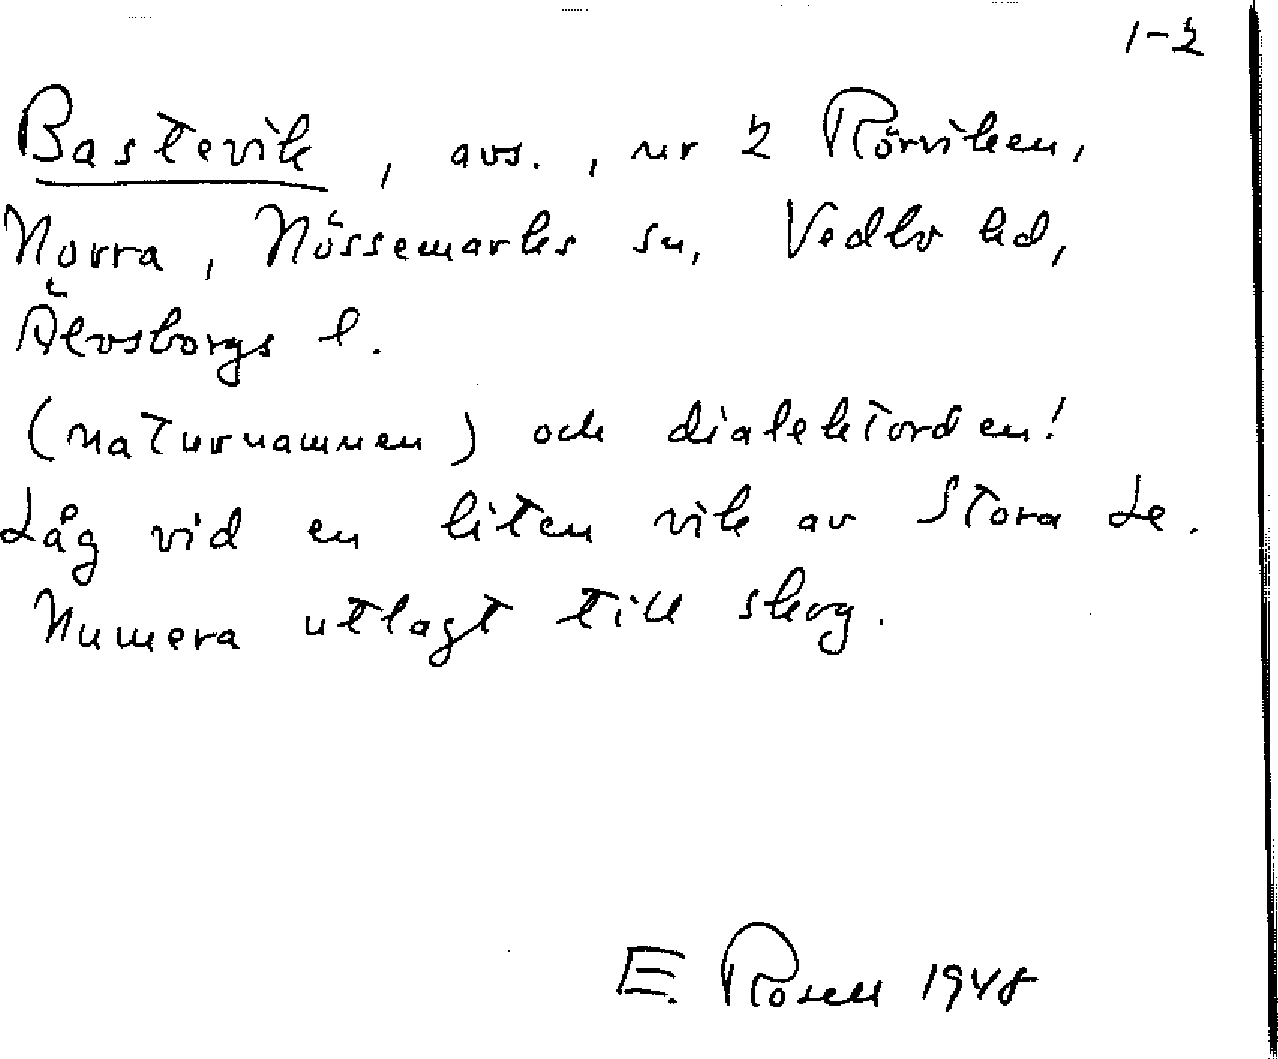 1-2
Bastevik, avs., nr 2 Rörviken,
Norra, Nössemarks sn, Vedbo hd,
Älvsborgs l.
(naturnamnen) och dialektorden!
Låg vid en liten vik av Stora Le.
Numera utlagt till skog.
E. Rosell 1948